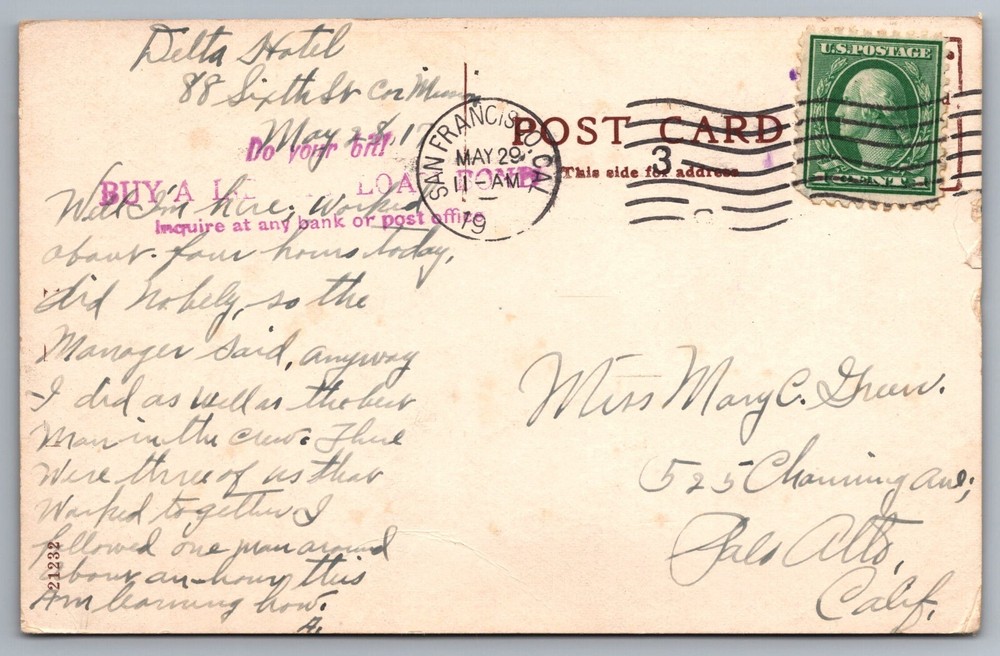 Delta Hotel
88 Sixth St Cor Mission
May 28, 17
Do your bit!
BUY A LOAN BOND
Inquire at any bank or post office
Well I'm here; worked
about four hours today,
did nobely, so the
Manager said, anyway
I did as well as the best
Man in the crew. There
Were three of us that
Worked together I
followed one man around
about an hour this
Am learning how.
A.
21232
SAN FRANCISCO. CAL
MAY 29
11-AM
POST CARD
3
This side for address
U.S. POSTAGE
1 CENT 1
Miss Mary C. Green.
525 Channing Ave;
Palo Alto,
Calif.